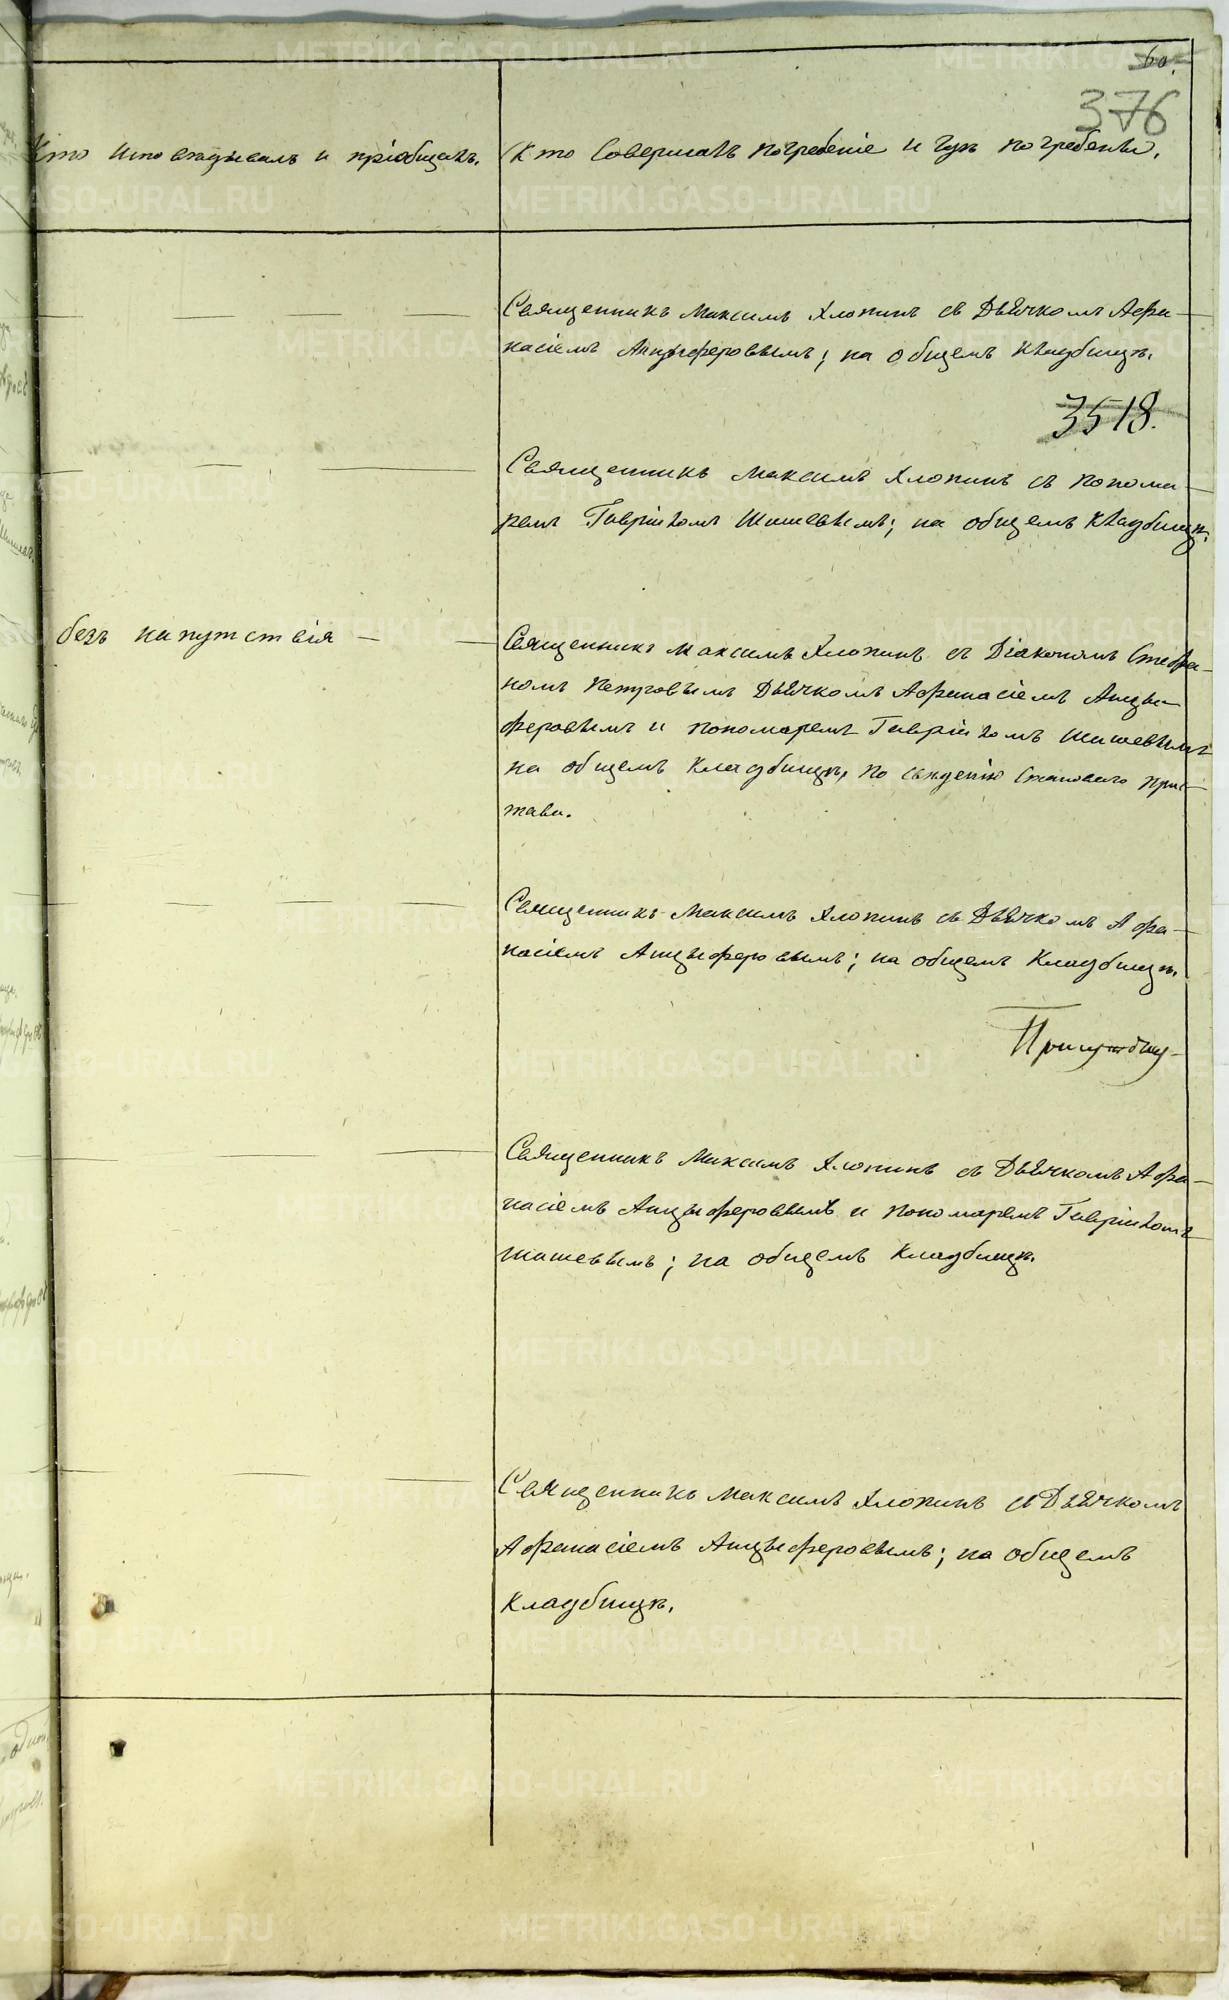 60.
376
Кто исповѣдывалъ и пріобщалъ.
Кто совершалъ погребеніе и гдѣ погребены.
Священникъ Максимъ Хлопинъ съ Дьячкомъ Афа-
насіемъ Анцыферовымъ; на общемъ кладбищѣ.
3518.
Священникъ Максимъ Хлопинъ съ понома-
ремъ Гавріиломъ Шишевымъ; на общемъ кладбищѣ.
безъ напутствія —
Священникъ Максимъ Хлопинъ съ Діакономъ Стефа-
номъ Петровымъ Дьячкомъ Афанасіемъ Анцы-
феровымъ и пономаремъ Гавріиломъ Шишевымъ
на общемъ кладбищѣ, по свѣденію Становаго при-
става.
Священникъ Максимъ Хлопинъ съ Дьячкомъ Афа-
насіемъ Анцыферовымъ; на общемъ кладбищѣ.
Священникъ Максимъ Хлопинъ съ Дьячкомъ Афа-
насіемъ Анцыферовымъ и пономаремъ Гавріиломъ
Шишевымъ; на общемъ кладбищѣ.
Священникъ Максимъ Хлопинъ съ Дьячкомъ
Афанасіемъ Анцыферовымъ; на общемъ
кладбищѣ.
METRIKI.GASO-URAL.RU